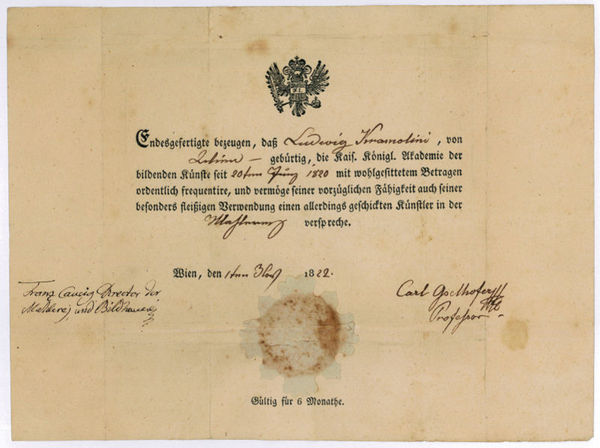 Endesgefertigte bezeugen, daß Ludwig Kramolini, von
gebürtig, die Kais. Königl. Akademie der
bildenden Künste seit 20ten 1820 mit wohlgesittetem Betragen
ordentlich frequentire, und vermöge seiner vorzüglichen Fähigkeit auch seiner
besonders fleißigen Verwendung einen allerdings geschickten Künstler in der
Mahlerey verspreche.
Wien, den 1ten 1822.
Franz Caucig Director der
Mahlerej und
Carl
Professor
Gültig für 6 Monathe.